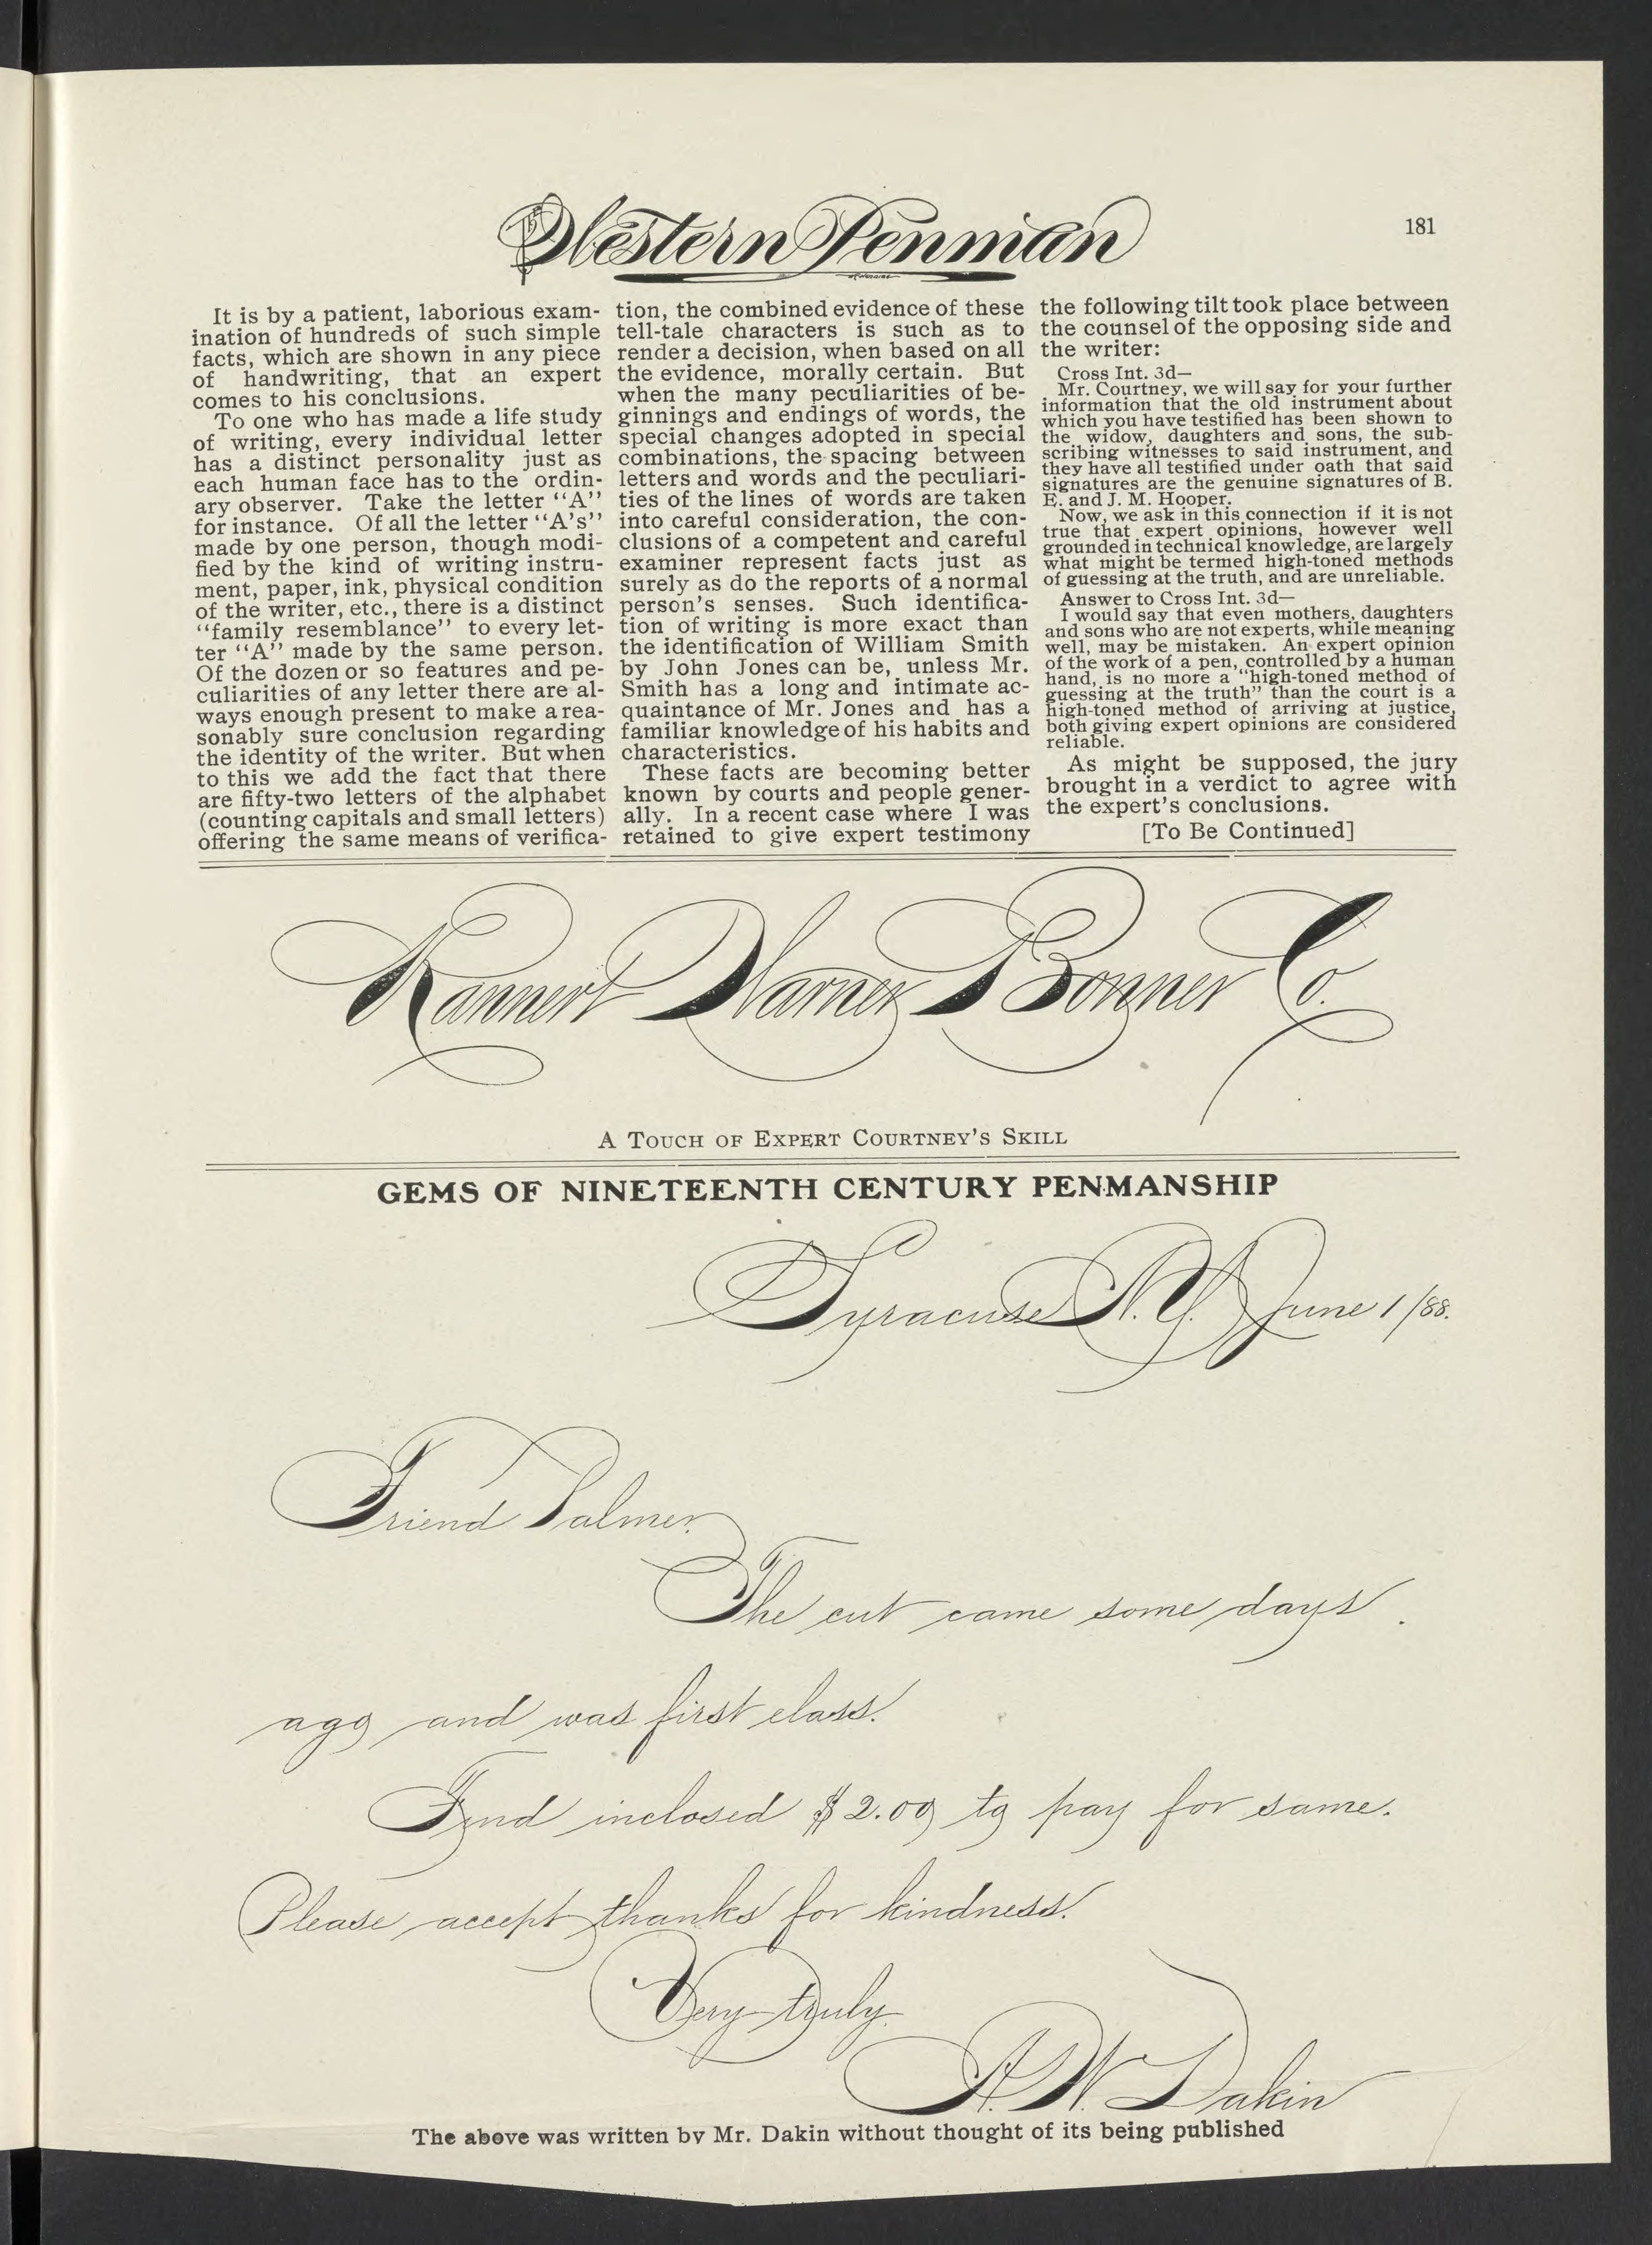 The Western Penman
181
It is by a patient, laborious exam-
ination of hundreds of such simple
facts, which are shown in any piece
of handwriting, that an expert
comes to his conclusions.
To one who has made a life study
of writing, every individual letter
has a distinct personality just as
each human face has to the ordin-
ary observer. Take the letter "A"
for instance. Of all the letter "A's"
made by one person, though modi-
fied by the kind of writing instru-
ment, paper, ink, physical condition
of the writer, etc., there is a distinct
"family resemblance" to every let-
ter "A" made by the same person.
Of the dozen or so features and pe-
culiarities of any letter there are al-
ways enough present to make a rea-
sonably sure conclusion regarding
the identity of the writer. But when
to this we add the fact that there
are fifty-two letters of the alphabet
(counting capitals and small letters)
offering the same means of verifica-
tion, the combined evidence of these
tell-tale characters is such as to
render a decision, when based on all
the evidence, morally certain. But
when the many peculiarities of be-
ginnings and endings of words, the
special changes adopted in special
combinations, the spacing between
letters and words and the peculiari-
ties of the lines of words are taken
into careful consideration, the con-
clusions of a competent and careful
examiner represent facts just as
surely as do the reports of a normal
person's senses. Such identifica-
tion of writing is more exact than
the identification of William Smith
by John Jones can be, unless Mr.
Smith has a long and intimate ac-
quaintance of Mr. Jones and has a
familiar knowledge of his habits and
characteristics.
These facts are becoming better
known by courts and people gener-
ally. In a recent case where I was
retained to give expert testimony
the following tilt took place between
the counsel of the opposing side and
the writer:
Cross Int. 3d—
Mr. Courtney, we will say for your further
information that the old instrument about
which you have testified has been shown to
the widow, daughters and sons, the sub-
scribing witnesses to said instrument, and
they have all testified under oath that said
signatures are the genuine signatures of B.
E. and J. M. Hooper.
Now, we ask in this connection if it is not
true that expert opinions, however well
grounded in technical knowledge, are largely
what might be termed high-toned methods
of guessing at the truth, and are unreliable.
Answer to Cross Int. 3d—
I would say that even mothers, daughters
and sons who are not experts, while meaning
well, may be mistaken. An expert opinion
of the work of a pen, controlled by a human
hand, is no more a "high-toned method of
guessing at the truth" than the court is a
high-toned method of arriving at justice,
both giving expert opinions are considered
reliable.
As might be supposed, the jury
brought in a verdict to agree with
the expert's conclusions.
[To Be Continued]
Kannert Warner Bonner Co.
A Touch of Expert Courtney's Skill
GEMS OF NINETEENTH CENTURY PENMANSHIP
Syracuse N.Y. June 1/88.
Friend Palmer.
The cut came some days
ago and was first class.
Find inclosed $2.00 to pay for same.
Please accept thanks for kindness.
Very truly
A. W. Dakin
The above was written by Mr. Dakin without thought of its being published